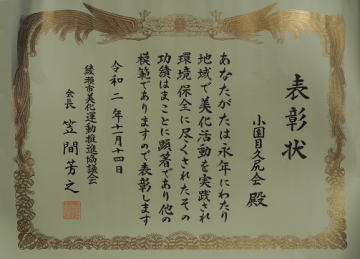 表彰状
小園目久尻会 殿
あなたがたは永年にわたり
地域で美化活動を実践され
環境保全に尽くされたその
功績はまことに顕著であり他の
模範でありますので表彰します
令和二年十一月十四日
綾瀬市美化運動推進協議会
会長 笠間芳之